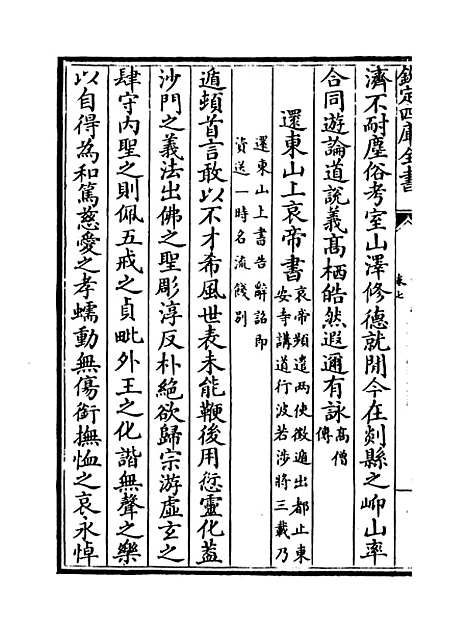 欽定四庫全書
卷七
濟不耐塵俗考室山澤修德就閒今在剡縣之岇山率
合同遊論道説義髙栖皓然遐邇有詠髙僧傳
還東山上哀帝書哀帝頻遣兩使徴遁出都止東安寺講道行波若渉將三載乃
還東山上書告辭詔即資送一時名流餞别
遁頓首言敢以不才希風世表未能鞭後用愆靈化葢
沙門之義法出佛之聖彫淳反朴絶欲歸宗游虚玄之
肆守内聖之則佩五戒之貞毗外王之化諧無聲之樂
以自得為和篤慈愛之孝蠕動無傷銜撫恤之哀永悼